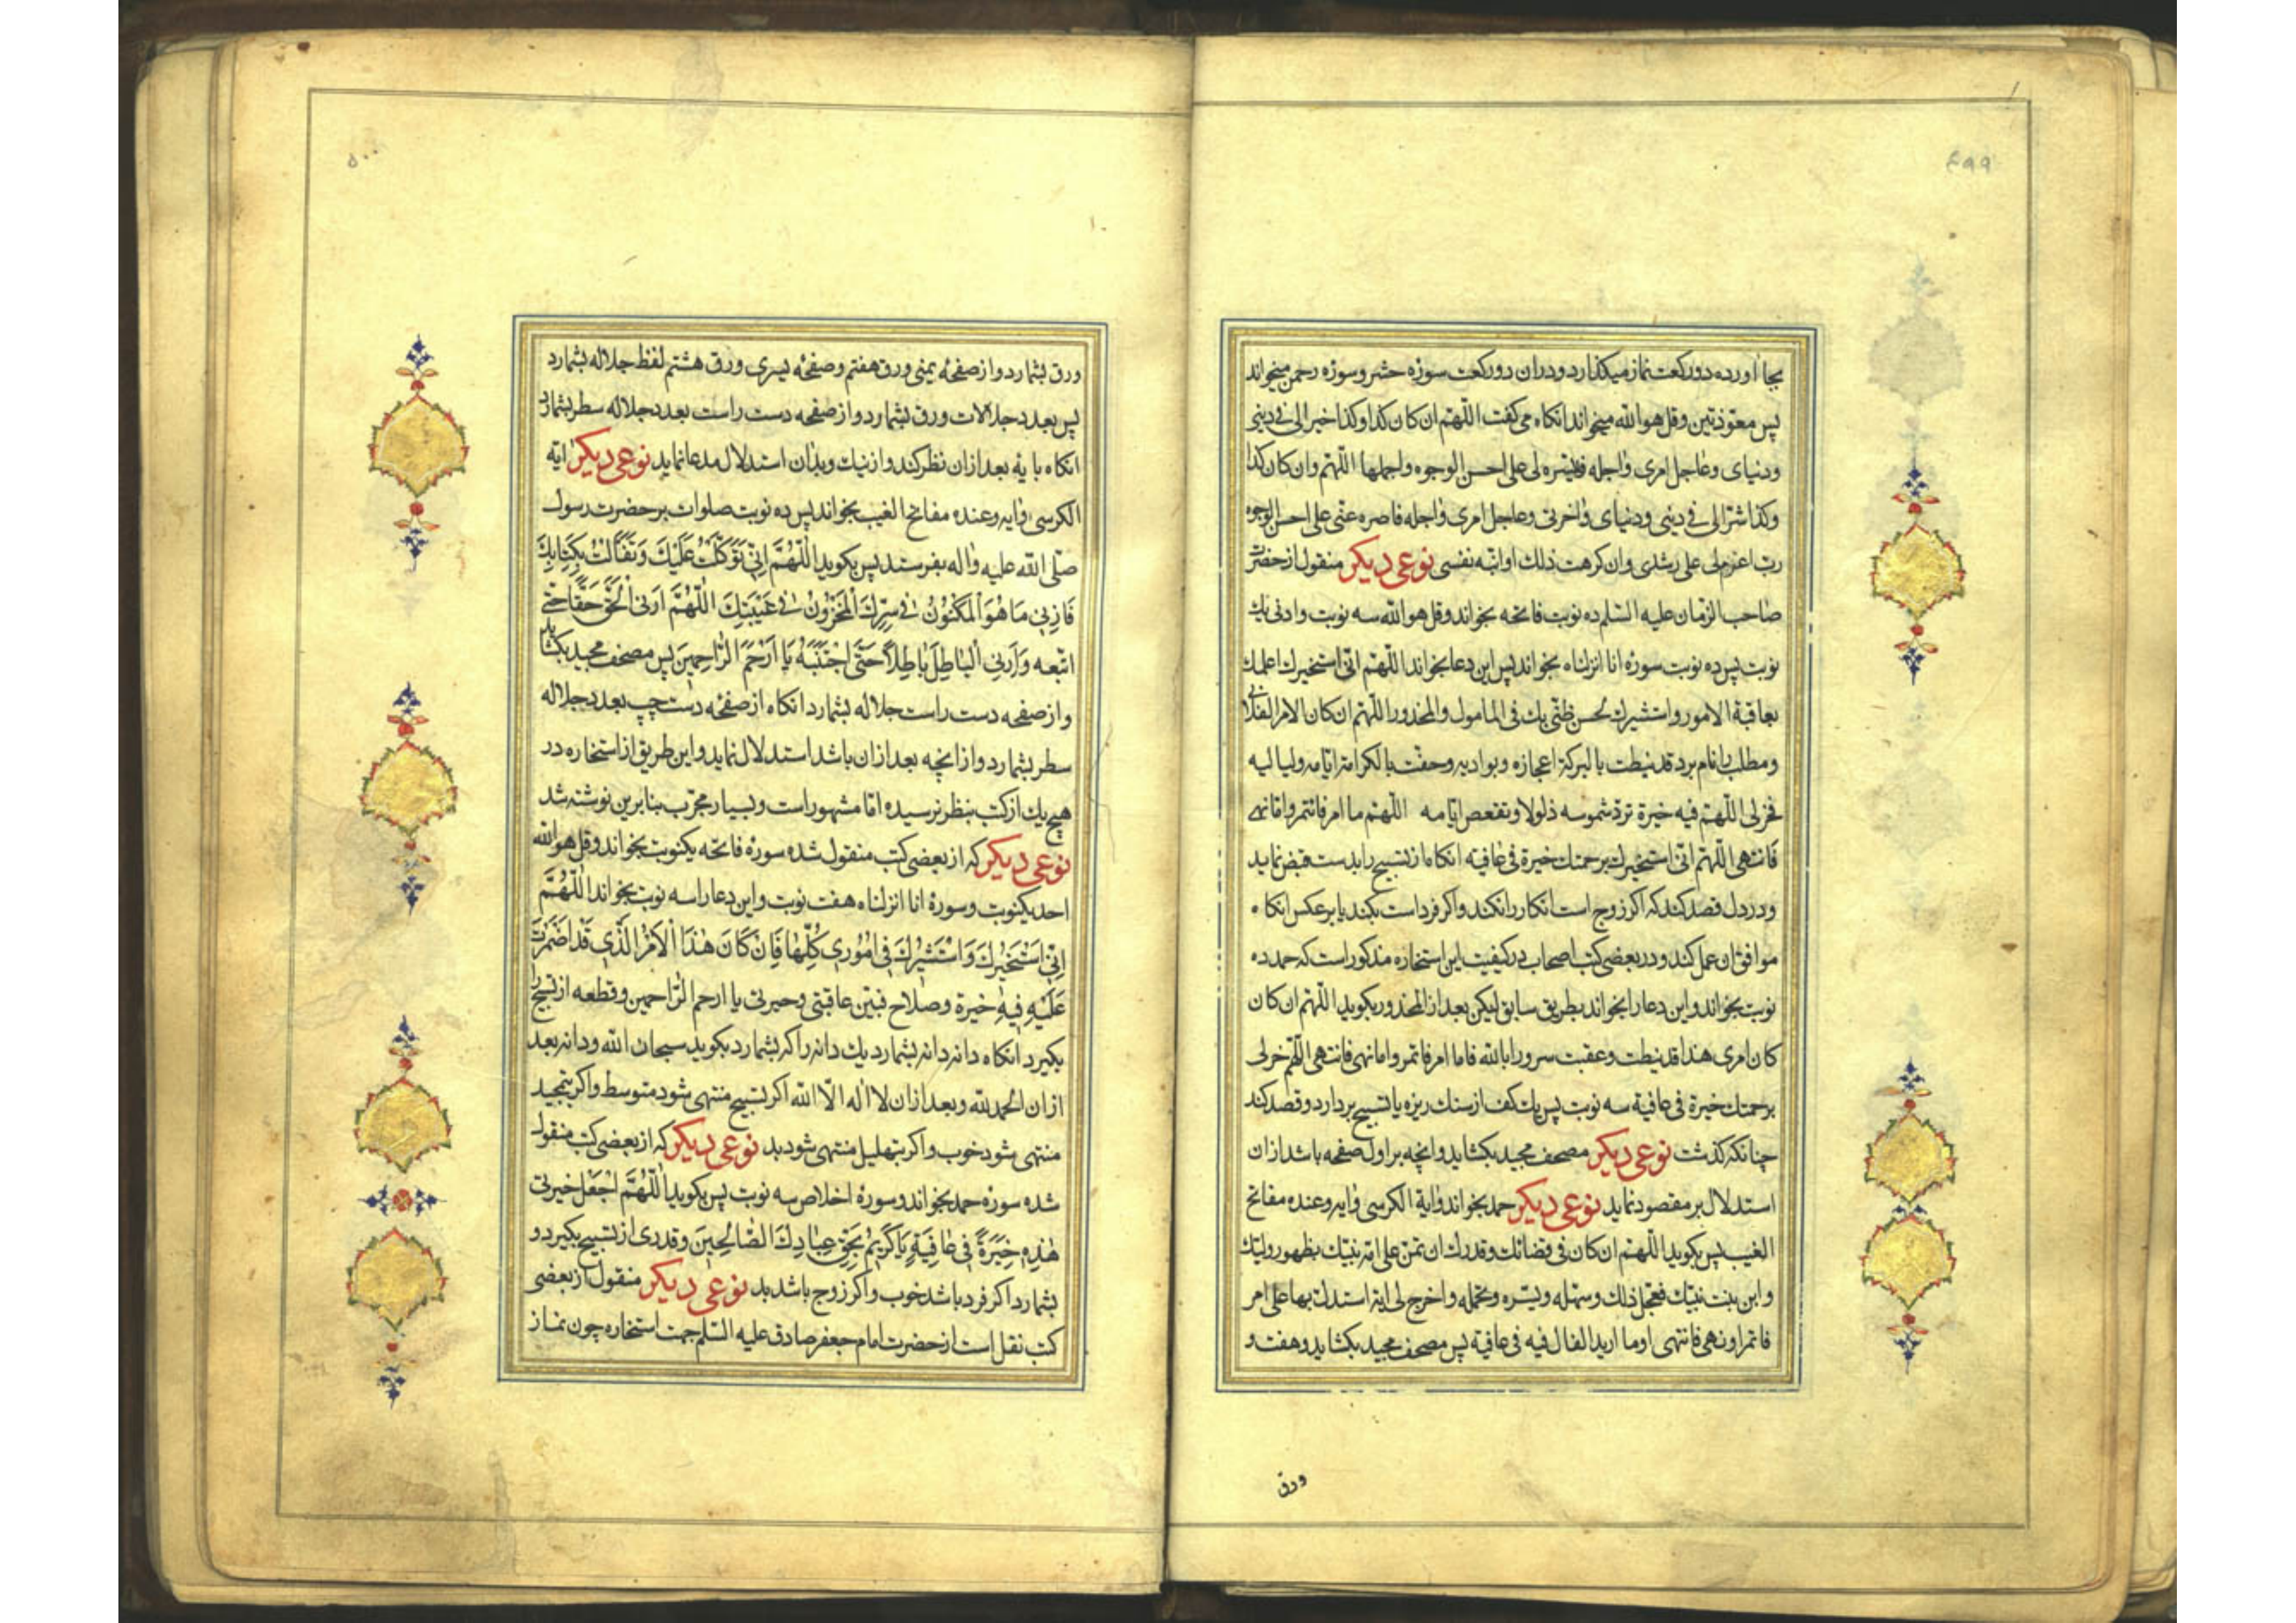 ٤٩٩
بجا آورده دو ركعت نماز ميكذارد و در ان دو ركعت سورۀ حشر و سورۀ رحمن ميخواند
پس معوّذتين و قل هو الله ميخواند انكاه مى كفت اللّهم ان كان كذا و كذا خيرا لى فى دينى
و دنياى و عاجل امرى واجله فيسّره لى على احسن الوجوه و اجملها اللّهم وان كان كذا
و كذا شرّا لى فى دينى و دنياى واخرتى و عاجل امرى واجله فاصره عنّى على احسن الوجوه
رب اعزم لى على رشدى وان كرهت ذلك او ابته نفسى نوعى ديكر منقول از حضرت
صاحب الزّمان عليه السّلم ده نوبت فاتحه بخواند و قل هو الله سه نوبت وادنى يك
نوبت پس ده نوبت سورۀ انا انزلناه بخواند پس اين دعا بخواند اللّهم انّى استخيرك لعلمك
بعاقبة الامور و استشيرك لحسن ظنّى بك فى المامول والمحذور اللّهم ان كان الامر الفلانى
و مطلب را نام برد قد نيطت بالبركة اعجازه و بواديه و حفّت بالكرامة ايّامه و لياليه
فخر لى اللّهم فيه خيرة ترد شموسه ذلولا و تقعص ايّامه اللّهم ما امر فائتمر و اما نهى
فانتهى اللّهم انى استخيرك برحمتك خيرة فى عافية انكاه از تسبيح را بدست قبض نمايد
و در دل قصد كند كه اكر زوج است انكار را نكند و اكر فرد است بكند يا بر عكس انكاه
موافق ان عمل كند و در بعضى كتب اصحاب در كيفيت اين استخاره مذكور است كه حمد ده
نوبت بخواند و اين دعا را بخواند بطريق سابق ليكن بعد از المحذور بكويد اللّهم ان كان
كان امرى هذا قد نيطت و عقبت سرورا بالله فاما امر فاتمر و اما نهى فانتهى اللّهم خر لى
برحمتك خيرة فى عافية سه نوبت پس يك كف از سنك ريزه يا تسبيح بردارد و قصد كند
چنانكه كذشت نوعى ديكر مصحف مجيد بكشايد و انچه بر اول صفحه باشد از ان
استدلال بر مقصود نمايد نوعى ديكر حمد بخواند واية الكرسى وايه و عنده مفاتح
الغيب پس بكويد اللّهم ان كان فى قضائك و قدرك ان تمن على امّة نبيّك بظهور وليّك
وابن بنت نبيّك فعجل ذلك و سهّله و يسّره و كمّله و اخرج لى اية استدل بها على امر
فاتمر او نهى فانتهى او ما اريد الفال فيه فى عافية پس مصحف مجيد بكشايد و هفت و
ورق
٥٠٠
ورق بشمارد و از صفحۀ يمنى ورق هفتم و صفحه يسرى ورق هشتم لفظ جلاله بشمارد
پس بعدد جلالات ورق بشمارد و از صفحه دست راست بعدد جلاله سطر بشمارد
انكاه باية بعد از ان نظر كند و از نيك و بد ان استدلال مدعا نمايد نوعى ديكر اية
الكرسى وايه و عنده مفاتح الغيب بخواند پس ده نوبت صلوات بر حضرت رسول
صلّى الله عليه واله بفرستد پس بكويد اَللّٰهُمَّ اِنّى تَوَكَّلْتُ عَلَيْكَ وَ تَفَأَّلْتُ بِكِتابِكَ
فَاَرِنى مَا هُوَ المَكْنُوْنُ فى سِرِّكَ المَخْزُوْنُ فى غَيْبَتِكَ اَللّٰهُمَّ اَرِنى الحَقَّ حَقًّا حَتّى
اتّبعه وَ اَرِنى الْبَاطِلَ بَاطِلًا حَتَّى اَجْتَنِبَهُ يَا اَرْحَمَ الرَّاحِمِيْنَ پس مصحف مجيد بكشايد
و از صفحه دست راست جلاله بشمارد انكاه از صفحه دست چپ بعدد جلاله
سطر بشمارد و از انچه بعد از ان باشد استدلال نمايد و اين طريق از استخاره در
هيچ يك از كتب بنظر نرسيده اما مشهور است و بسيار مجرّب بنابرين نوشته شد
نوعى ديكر كه از بعضى كتب منقول شده سورۀ فاتحه يكنوبت بخواند و قل هو الله
احد يكنوبت و سورۀ انا انزلناه هفت نوبت و اين دعا را سه نوبت بخواند اَللّٰهُمَّ
اِنّى اَسْتَخِيْرُكَ وَ اَسْتَشِيْرُكَ فى اُمُوْرى كُلِّهَا فَاِنْ كَانَ هٰذَا الْاَمْرُ الَّذى قَدْ اَضْمَرْتُ
عَلَيْهِ فِيْهِ خيرة و صلاح فبيّن عاقبتى و حيرتى يا ارحم الرّاحمين و قطعه از تسبيح را
بكيرد انكاه دانه دانه بشمارد يك دانه را كه بشمارد بكويد سبحان الله و دانه بعد
از ان الحمد لله و بعد از ان لا اله الّا الله اكر تسبيح منتهى شود متوسط و اكر بتمجيد
منتهى شود خوب و اكر بتهليل منتهى شود بد نوعى ديكر كه از بعضى كتب منقول
شده سورۀ حمد بخواند و سورۀ اخلاص سه نوبت پس بكويد اَللّٰهُمَّ اجْعَلْ خيرتى
هٰذِهِ خِيَرَةً فى عَافِيَةٍ يَا كَرِيْمُ بِحَقِّ عِبَادِكَ الصَّالِحِيْنَ و قدرى از تسبيح بكيرد و
بشمارد اكر فرد باشد خوب و اكر زوج باشد بد نوعى ديكر منقول از بعضى
كتب نقل است از حضرت امام جعفر صادق عليه السّلم جهت استخاره چون نماز